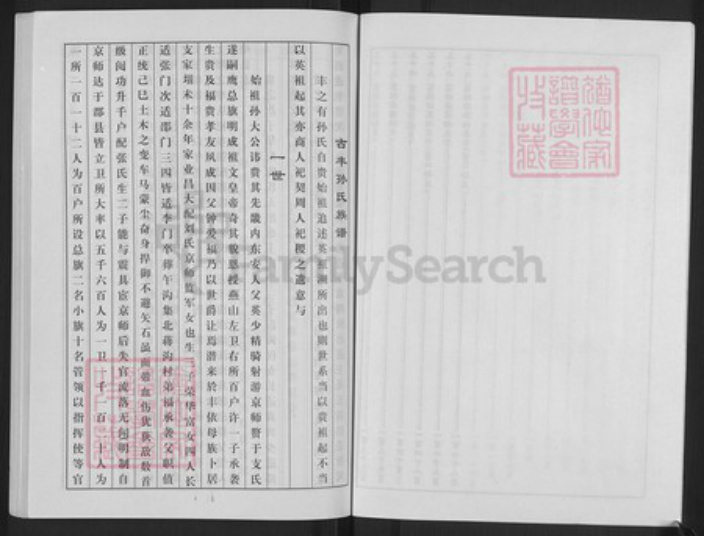 古丰孙氏族谱
丰之有孙氏自贵始祖追述英祖渊所出也则世系当以贵祖起不当
以英祖起其亦商人祀契周人祀稷之遗意与
一世
始祖孙大公讳贵其先畿内东安人父英少精骑射游京师赘于支氏
遂嗣鹰总旗明成祖文皇帝奇其貌恩授燕山左卫右所百户许一子承袭
生贵及福贵孝友夙成因父钟爱福乃以世爵让焉潜来於丰依母族卜居
支家塌未十余年家业昌大配刘氏京师监军女也生 子荣华富女四人长
适张门次适邵门三四皆适李门卒葬午沟集北蒋沟村弟福承袭父职值
正统己巳土木之变车马蒙尘奋身捍御不避矢石 面 血伤犹 敌数首
级阅功升千户配张氏生二子能与震具宦京师后失官流落无闻明制自
京师达于郡县皆立卫所大率以五千六百人为一卫一千一百 十人为
一所一百一十二人为百户所设总旗二名小旗十名管领以指挥使等官
犹他家
谱学会
收藏
FamilySearch